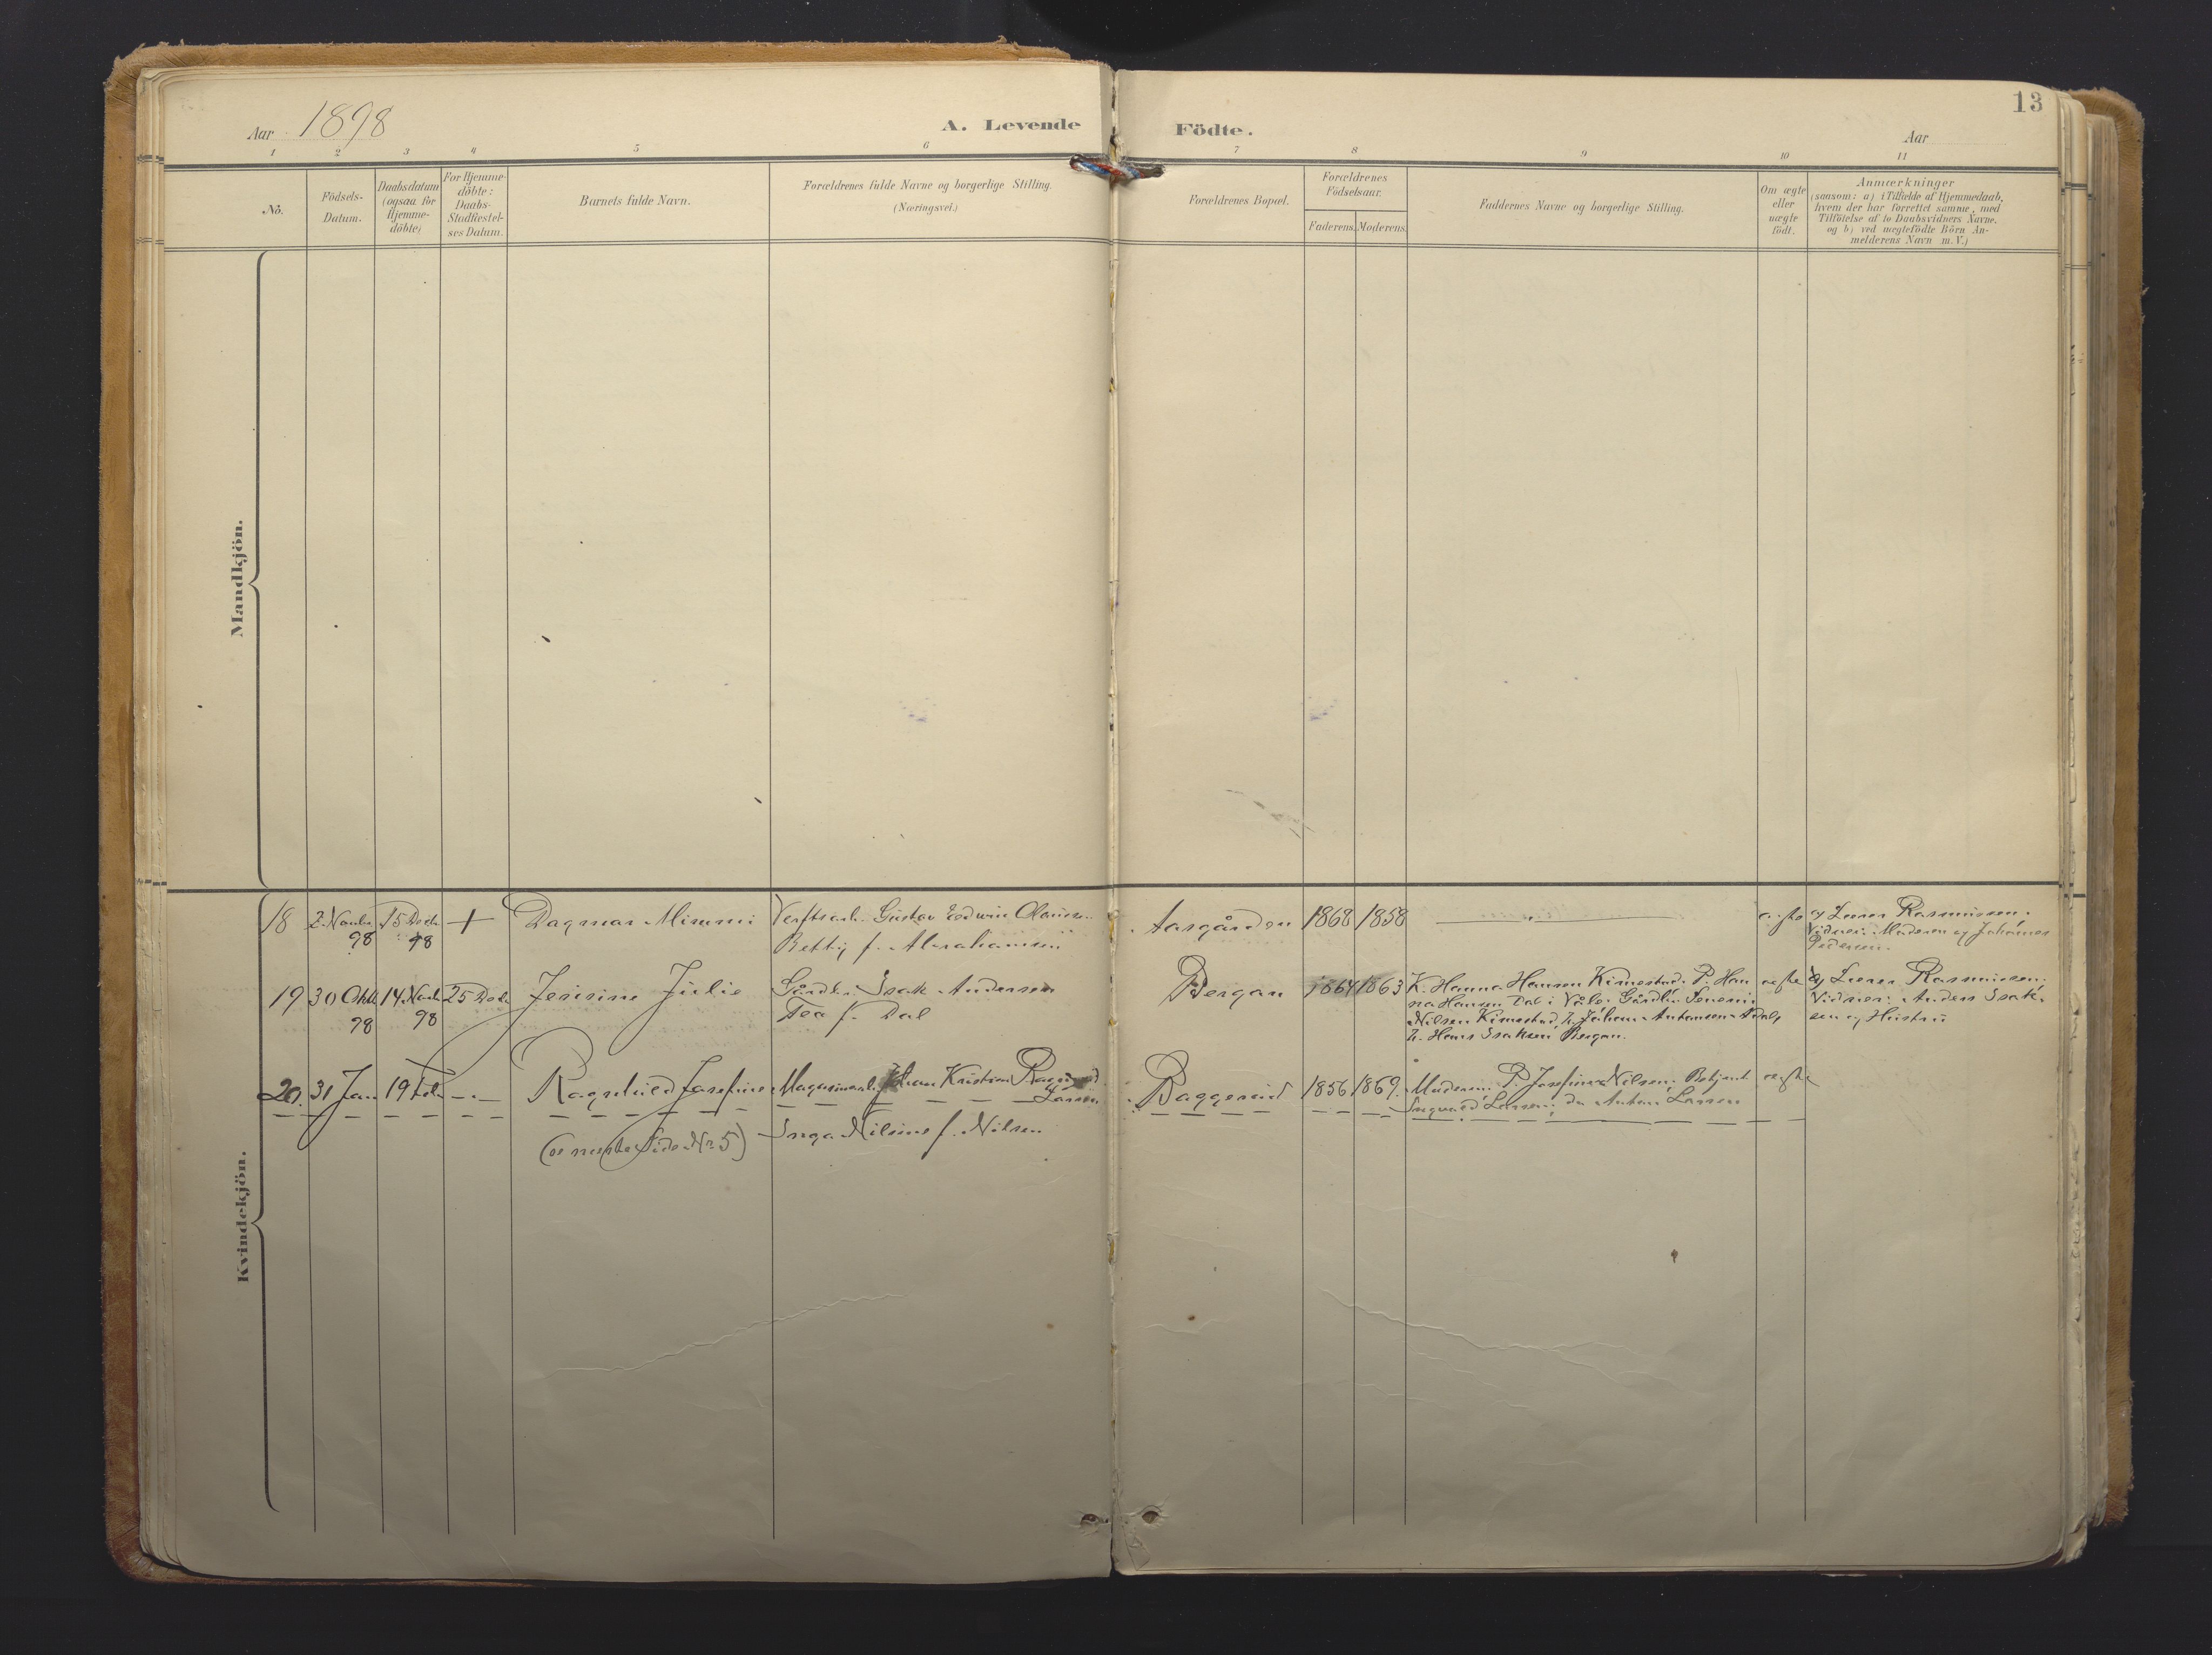 13
Aar 1898
A. Levende Födte.
Aar
1 2 3 4 5 6 7 8 9 10 11
No.
Födsels-
Datum.
Daabsdatum
(ogsaa for
Hjemme-
döbte)
For Hjemme-
döbte:
Daabs-
Stadfæstel-
ses Datum.
Barnets fulde Navn.
Forældrenes fulde Navne og borgerlige Stilling.
(Næringsvei.)
Forældrenes Bopæl.
Forældrenes
Födselsaar.
Faderens. Moderens.
Faddernes Navne og borgerlige Stilling.
Om ægte
eller
uægte
födt.
Anmærkninger
(saasom: a) i Tilfælde af Hjemmedaab,
hvem der har forrettet samme, med
Tilföielse af to Daabsvidners Navne,
og b) ved uægtefödte Börn An-
melderens Navn m. V.)
Mandkjön.
Kvindekjön.
18
2 Novbr
98
15 Decbr
98
+
Dagmar Mimmi
Verftsarb. Gustav Edwin Olausen
Betty f. Abrahamsen
Aasgården
1868
1858
ægte
a) Lærer Rasmussen.
Vidner: Moderen og Johannes
Pedersen.
19
30 Oktb
98
14 Novb
98
25 Decbr
Jensine Julie
Gårdbr. Isak Andersen
Tea f. Dal
Bergan
1864
1863
K. Hanna Hansen Kimestad. P. Han
na Hansen Dal i Våle. Gårdbr. Severin
Nilsen Kimestad, U. Johan Antonsen Adal,
U. Hans Isaksen Bergan.
ægte
a) Lærer Rasmussen:
Vidner: Anders Isak-
sen og Hustru
20.
31 Jan
19 Feb
Ragnhild Josefine
(se næste Side No 5)
Magasinarb. Johan Kristian
Larsen
Inga Nilsine f. Nilsen
Baggerød
1856
1869.
Moderen. P. Josefine Nilsen; Betjent
Ingvald Larsen; do Anton Larsen
ægte